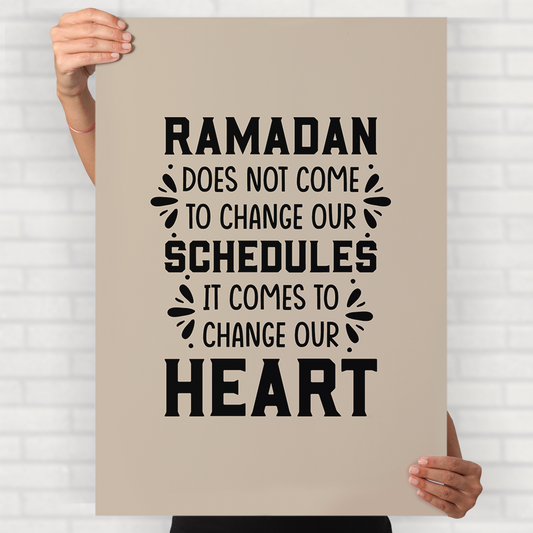 RAMADAN
DOES NOT COME
TO CHANGE OUR
SCHEDULES
IT COMES TO
CHANGE OUR
HEART